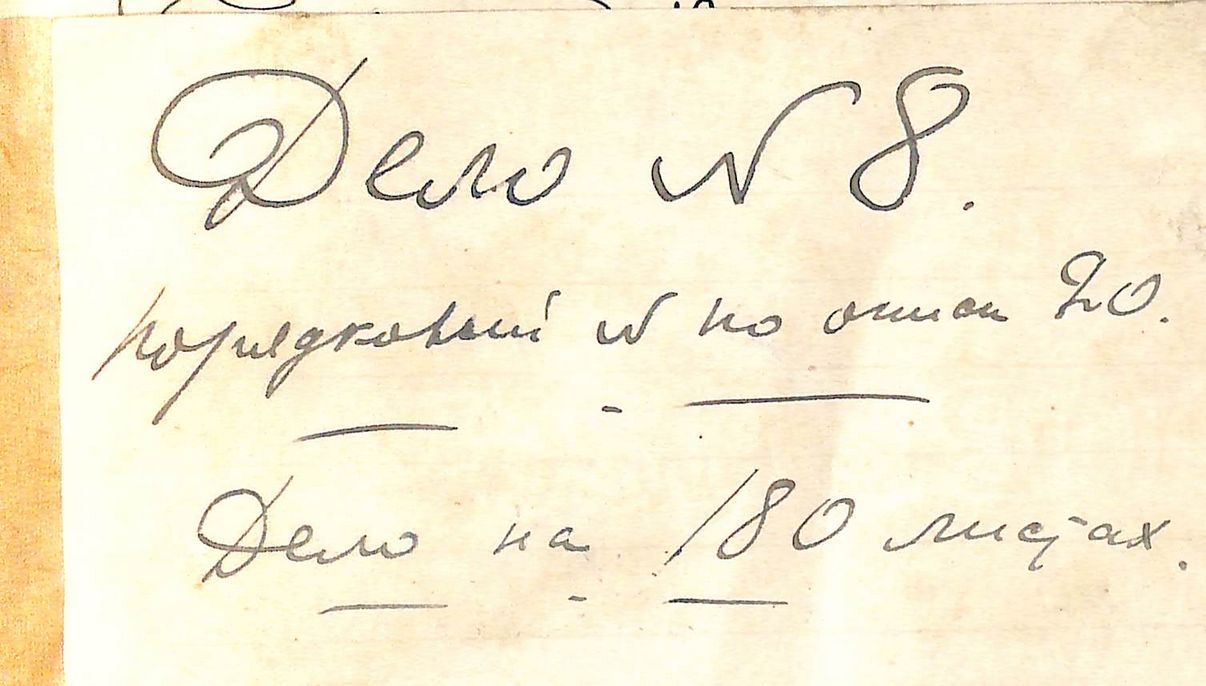 Дело № 8.
порядковый № по описи 20.
Дело на 180 листах.